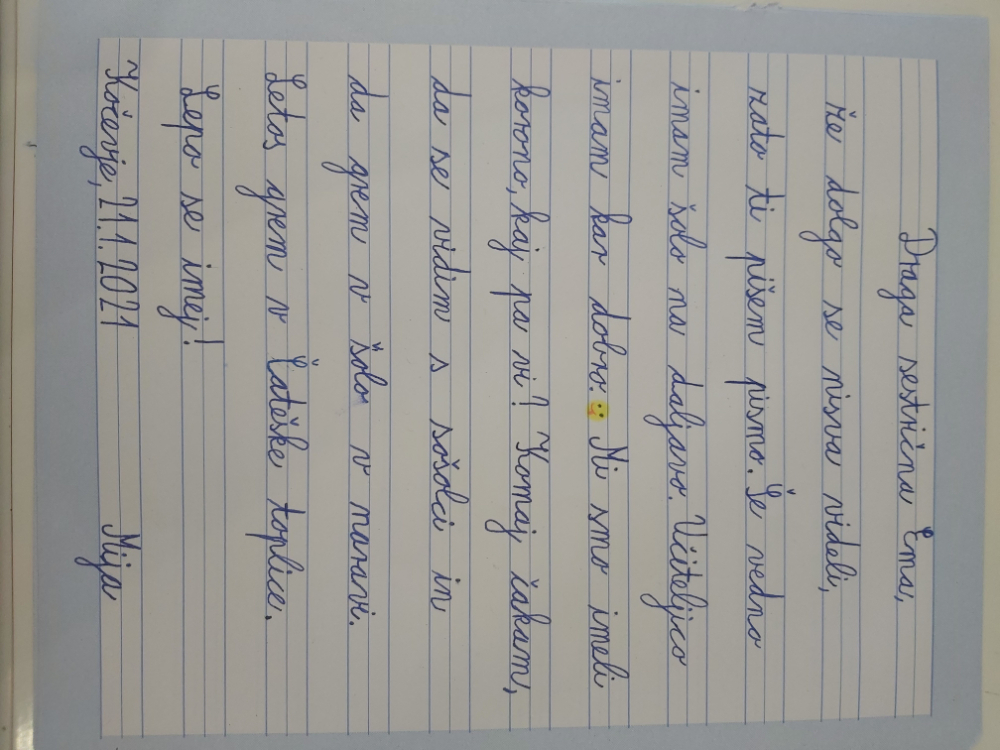 Draga sestrična Ema,
že dolgo se nisva videli,
zato ti pišem pismo. Še vedno
imam šolo na daljavo. Učiteljico
imam kar dobro. Mi smo imeli
korono, kaj pa vi? Komaj čakam,
da se vidim s sošolci in
da grem v šolo v naravi.
Letos grem v Čateške toplice.
Lepo se imej!
Kočevje, 21.1.2021 Mija